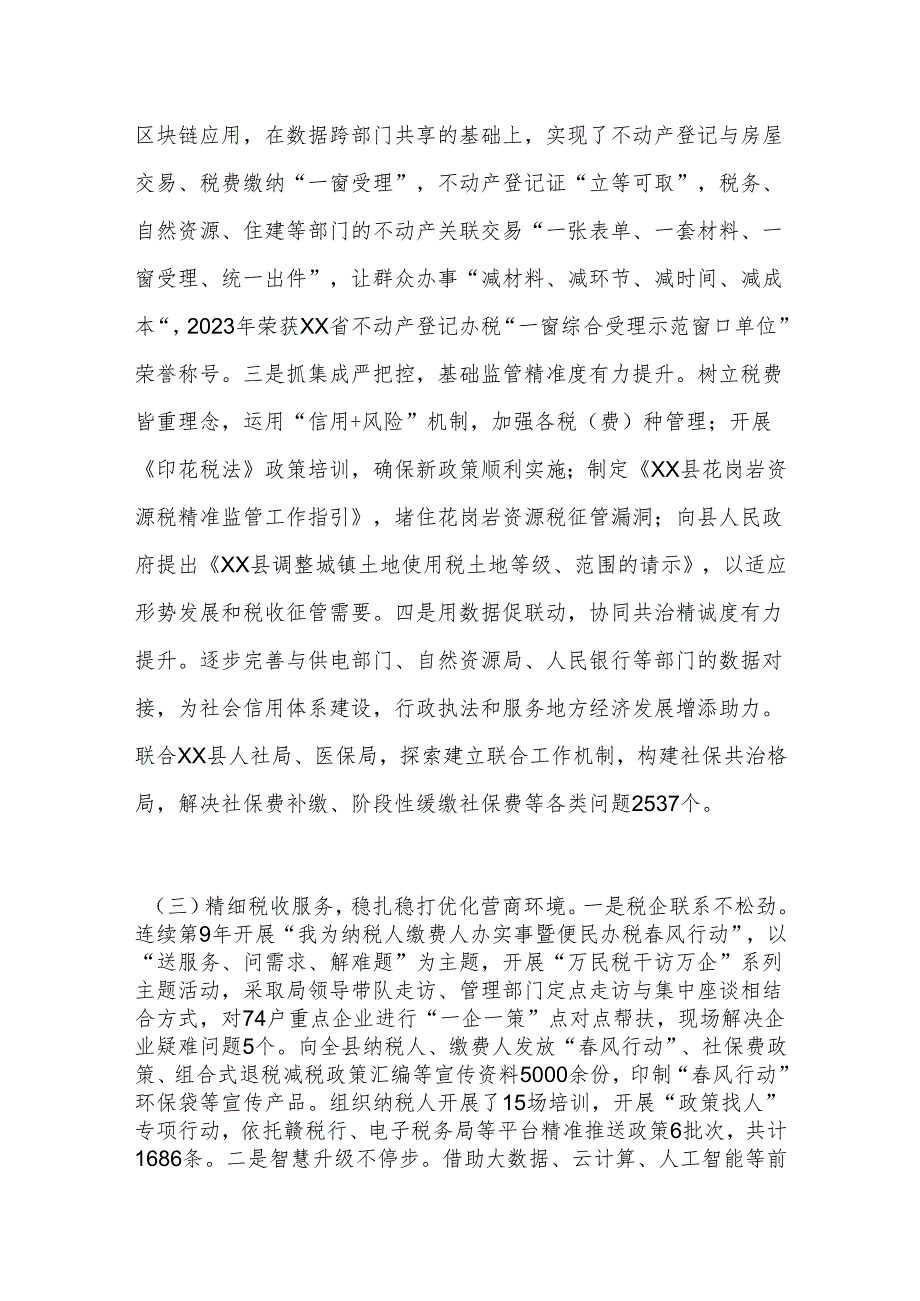 区块链应用，在数据跨部门共享的基础上，实现了不动产登记与房屋
交易、税费缴纳“一窗受理”，不动产登记证“立等可取”，税务、
自然资源、住建等部门的不动产关联交易“一张表单、一套材料、一
窗受理、统一出件”，让群众办事“减材料、减环节、减时间、减成
本“，2023年荣获XX省不动产登记办税“一窗综合受理示范窗口单位”
荣誉称号。三是抓集成严把控，基础监管精准度有力提升。树立税费
皆重理念，运用“信用+风险”机制，加强各税（费）种管理；开展
《印花税法》政策培训，确保新政策顺利实施；制定《XX县花岗岩资
源税精准监管工作指引》，堵住花岗岩资源税征管漏洞；向县人民政
府提出《XX县调整城镇土地使用税土地等级、范围的请示》，以适应
形势发展和税收征管需要。四是用数据促联动，协同共治精诚度有力
提升。逐步完善与供电部门、自然资源局、人民银行等部门的数据对
接，为社会信用体系建设，行政执法和服务地方经济发展增添助力。
联合XX县人社局、医保局，探索建立联合工作机制，构建社保共治格
局，解决社保费补缴、阶段性缓缴社保费等各类问题2537个。
（三）精细税收服务，稳扎稳打优化营商环境。一是税企联系不松劲。
连续第9年开展“我为纳税人缴费人办实事暨便民办税春风行动”，以
“送服务、问需求、解难题”为主题，开展“万民税干访万企”系列
主题活动，采取局领导带队走访、管理部门定点走访与集中座谈相结
合方式，对74户重点企业进行“一企一策”点对点帮扶，现场解决企
业疑难问题5个。向全县纳税人、缴费人发放“春风行动”、社保费政
策、组合式退税减税政策汇编等宣传资料5000余份，印制“春风行动”
环保袋等宣传产品。组织纳税人开展了15场培训，开展“政策找人”
专项行动，依托赣税行、电子税务局等平台精准推送政策6批次，共计
1686条。二是智慧升级不停步。借助大数据、云计算、人工智能等前